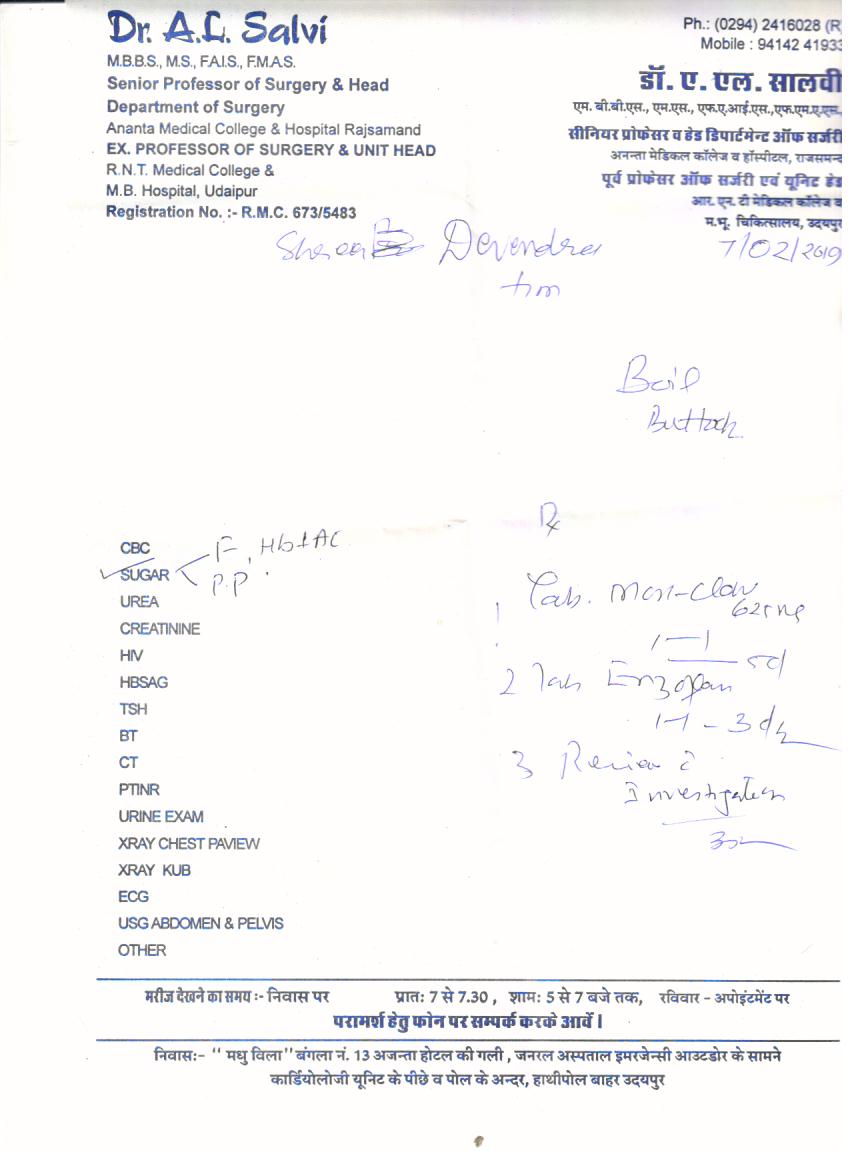 Dr. A.L. Salvi
M.B.B.S., M.S., F.A.I.S., F.M.A.S.
Senior Professor of Surgery & Head
Department of Surgery
Ananta Medical College & Hospital Rajsamand
EX. PROFESSOR OF SURGERY & UNIT HEAD
R.N.T. Medical College &
M.B. Hospital, Udaipur
Registration No. :- R.M.C. 673/5483
Ph.: (0294) 2416028 (R
Mobile : 94142 41933
डॉ. ए. एल. सालवी
एम. बी.बी.एस., एम.एस., एफ.ए.आई.एस.,एफ.एम.ए.एस.
सीनियर प्रोफेसर व हेड डिपार्टमेन्ट ऑफ सर्जरी
अनन्ता मेडिकल कॉलेज व हॉस्पीटल, राजसमन्द
पूर्व प्रोफेसर ऑफ सर्जरी एवं यूनिट हेड
आर. एन. टी मेडिकल कॉलेज व
म.भू. चिकित्सालय, उदयपुर
Devendra
7/02/2019
Boil
Buttock
Rx
CBC
SUGAR F, Hb1AC
P.P.
UREA
CREATININE
HIV
HBSAG
TSH
BT
CT
PTINR
URINE EXAM
XRAY CHEST PAVIEW
XRAY KUB
ECG
USG ABDOMEN & PELVIS
OTHER
1 Tab. Mox-Clav
625mg
1-1 5d
2 Tab Enzoflam
1-1 - 3d
3 Review c
Investigation
मरीज देखने का समय :- निवास पर प्रात: 7 से 7.30 , शाम: 5 से 7 बजे तक, रविवार - अपोइंटमेंट पर
परामर्श हेतु फोन पर सम्पर्क करके आवें।
निवास:- " मधु विला" बंगला नं. 13 अजन्ता होटल की गली , जनरल अस्पताल इमरजेन्सी आउटडोर के सामने
कार्डियोलोजी यूनिट के पीछे व पोल के अन्दर, हाथीपोल बाहर उदयपुर